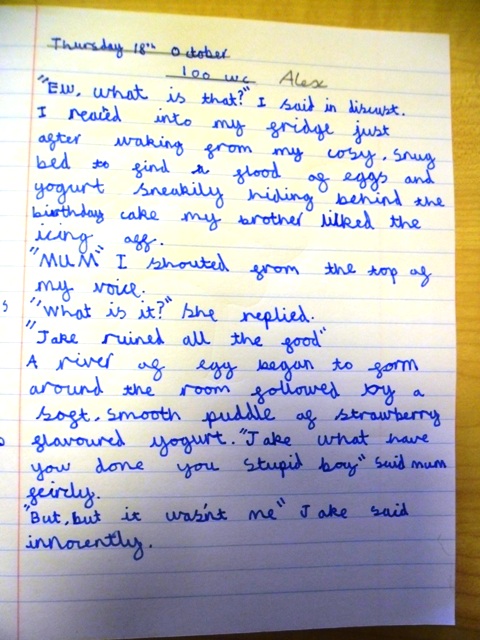 Thursday 18th October
100 wc Alex
"Ew, what is that?" I said in discust.
I reacéd into my fridge just
after waking from my cosy, snug
bed to find a flood of eggs and
yogurt sneakily hiding behind the
birthday cake my brother lilked the
icing off.
"MUM" I shouted from the top of
my voice.
"What is it?" She replied.
"Jake ruined all the food"
A river of egg began to form
around the room followed by a
soft, smooth puddle of strawberry
flavoured yogurt. "Jake what have
you done you stupid boy" said mum
feircly.
"But, but it was'nt me" Jake said
innorently.